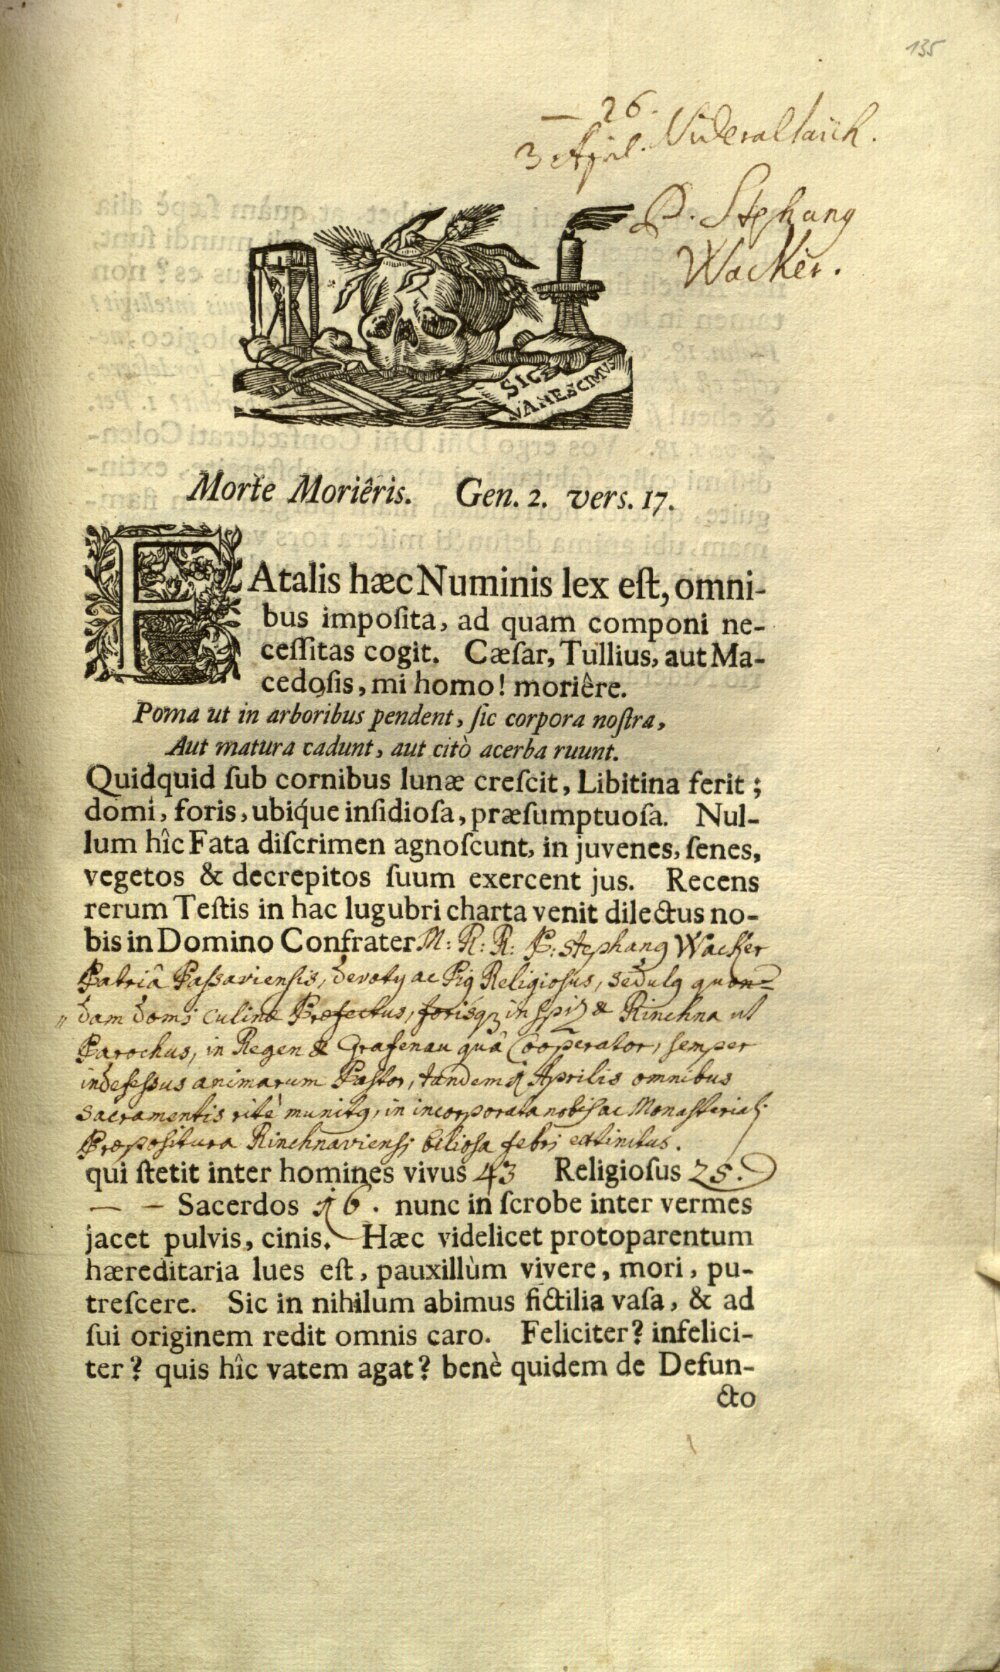 135
— 26.
3 April. Nideraltaich.
P. Stephang
Wacker.
SIC E
VANESCIMUS
Morte Moriêris. Gen. 2. vers. 17.
FAtalis hæc Numinis lex est, omni-
bus imposita, ad quam componi ne-
cessitas cogit. Cæsar, Tullius, aut Ma-
cedosis, mi homo! moriêre.
Poma ut in arboribus pendent, sic corpora nostra,
Aut matura cadunt, aut citò acerba ruunt.
Quidquid sub cornibus lunæ crescit, Libitina ferit;
domi, foris, ubique insidiosa, præsumptuosa. Nul-
lum hîc Fata discrimen agnoscunt, in juvenes, senes,
vegetos & decrepitos suum exercent jus. Recens
rerum Testis in hac lugubri charta venit dilectus no-
bis in Domino Confrater M: R: R: P: Stephang Wacker
Patriâ Passaviensis, devotg ac Pig Religiosus, sedulg quon-
dam domi culinæ Præfectus, forisq; in & Rinchna ut
Parochus, in Regen & Grafenau quâ Cooperator, semper
indefessus animarum Pastor, tandem Aprilis omnibus
Sacramentis ritè munitg, in incorporata nobis ac Monasteriali
Præpositura Rinchnaviensi biliosa febri extinctus.
qui stetit inter homines vivus 43 Religiosus 25.
— — Sacerdos 16. nunc in scrobe inter vermes
jacet pulvis, cinis. Hæc videlicet protoparentum
hæreditaria lues est, pauxillùm vivere, mori, pu-
trescere. Sic in nihilum abimus fictilia vasa, & ad
sui originem redit omnis caro. Feliciter? infelici-
ter? quis hîc vatem agat? benè quidem de Defun-
cto